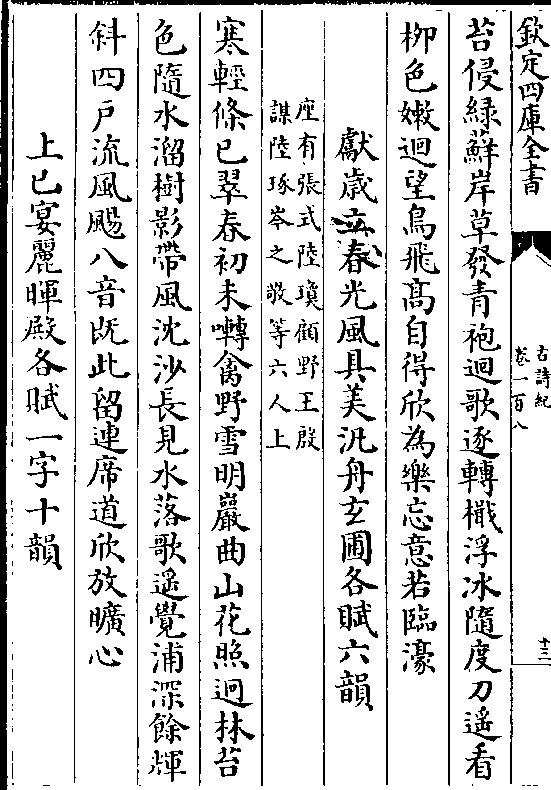 欽定四庫全書
古詩紀
卷一百八
十三
苔侵綠蘚岸草發青袍迴歌逐轉檝浮冰隨度刀遥看
柳色嫩迴望鳥飛髙自得欣為樂忘意若臨濠
獻歳立春光風具美汎舟玄圃各賦六韻
座有張式陸瓊顧野王殷
謀陸琢岑之敬等六人上
寒輕條已翠春初未囀禽野雪明巖曲山花照迥林苔
色隨水溜樹影帶風沈沙長見水落歌遥覺浦深餘輝
斜四户流風颺八音既此留連席道欣放曠心
上巳宴麗暉殿各賦一字十韻